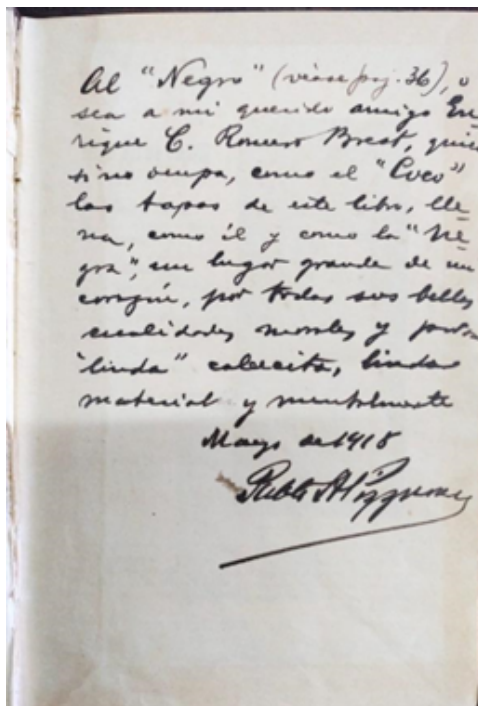 Al "Negro" (véase pág. 36), o
sea a mi querido amigo En
rique C. Romero Brest, quien
si no ocupa, como el "Coco"
las tapas de este libro, lle
na, como él y como la "Ne
gra", un lugar grande de mi
corazón, por todas sus bellas
cualidades morales y por su
"linda" cabecita, linda
material y mentalmente
Mayo de 1918
Pablo A. Pizzurno